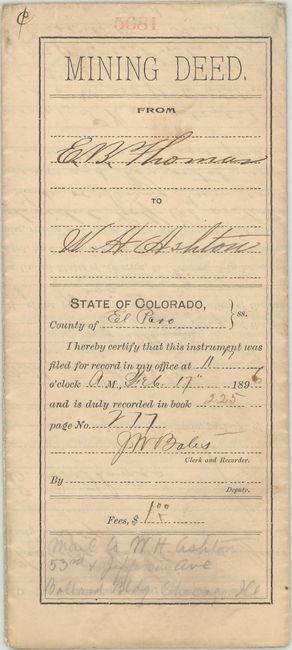 5681
MINING DEED.
FROM
E. B. Thomas
TO
W. H. Ashton
STATE OF COLORADO,
County of El Paso } ss.
I hereby certify that this instrument was
filed for record in my office at 11
o'clock A M., Dec. 17" 1896
and is duly recorded in book 225
page No. 277
J W Bates
Clerk and Recorder.
By
Deputy.
Fees, $ 1 00
Mail to W. H. Ashton
53rd & Ave
Bldg. Chicago Ill